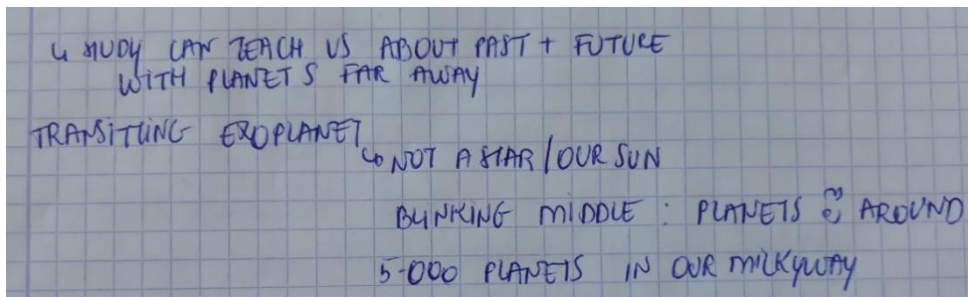 ↳ STUDY CAN TEACH US ABOUT PAST + FUTURE
WITH PLANETS FAR AWAY
TRANSITIING EXOPLANET
↳ NOT A STAR / OUR SUN
BLINKING MIDDLE : PLANETS AROUND
5-000 PLANETS IN OUR MILKYWAY